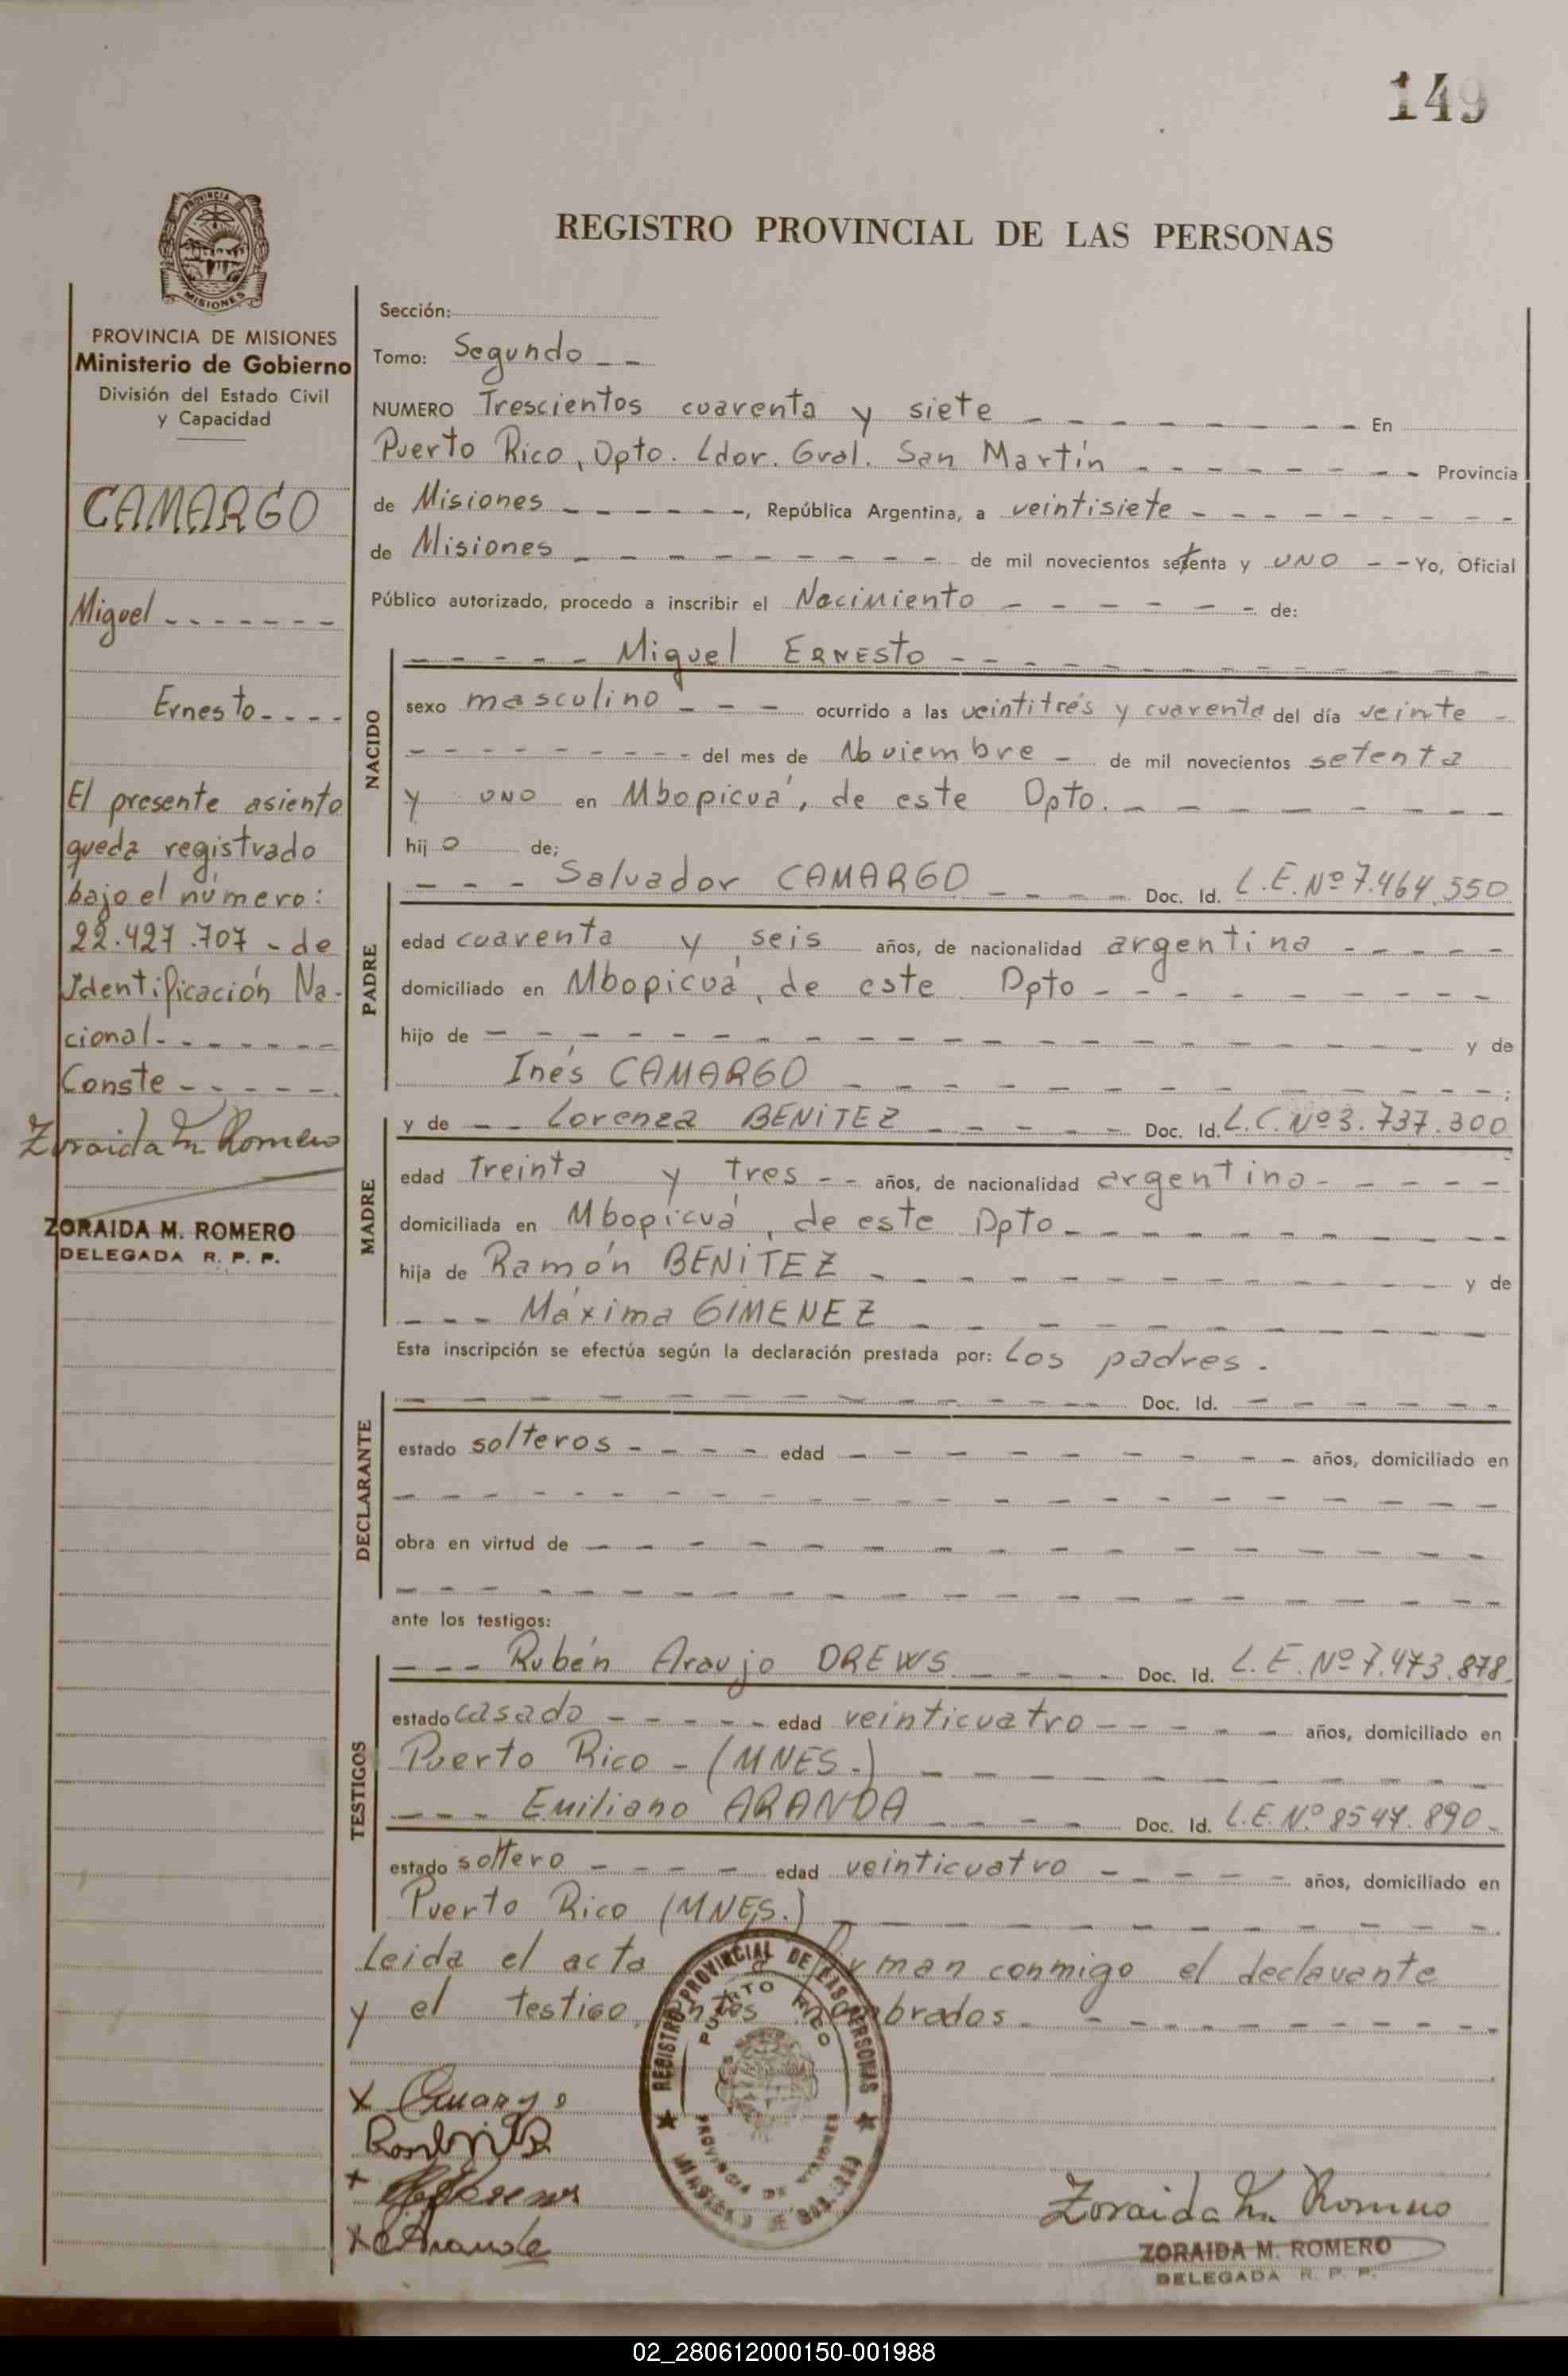 149
REGISTRO PROVINCIAL DE LAS PERSONAS
PROVINCIA
MISIONES
PROVINCIA DE MISIONES
Ministerio de Gobierno
División del Estado Civil
y Capacidad
CAMARGO
Miguel
Ernesto
El presente asiento
queda registrado
bajo el número:
22.427.707 - de
Identificación Na-
cional
Conste
Zoraida M. Romero
ZORAIDA M. ROMERO
DELEGADA R. P. P.
Sección:
Tomo: Segundo
NUMERO Trescientos cuarenta y siete En
Puerto Rico, Dpto. Ldor. Gral. San Martín Provincia
de Misiones, República Argentina, a veintisiete
de Misiones de mil novecientos setenta y uno Yo, Oficial
Público autorizado, procedo a inscribir el Nacimiento de:
NACIDO
Miguel ERNESTO
sexo masculino ocurrido a las veintitrés y cuarenta del día veinte
del mes de Noviembre de mil novecientos setenta
y uno en Mbopicuá, de este Dpto.
hij o de;
PADRE
Salvador CAMARGO Doc. Id. L.E. Nº 7.464.550
edad cuarenta y seis años, de nacionalidad argentina
domiciliado en Mbopicuá, de este Dpto
hijo de y de
Inés CAMARGO ;
MADRE
y de Lorenza BENITEZ Doc. Id. L.C. Nº 3.737.300
edad Treinta y tres años, de nacionalidad argentina
domiciliada en Mbopicuá, de este Dpto
hija de Ramón BENITEZ y de
Máxima GIMENEZ
Esta inscripción se efectúa según la declaración prestada por: Los padres.
DECLARANTE
Doc. Id.
estado solteros edad años, domiciliado en
obra en virtud de
ante los testigos:
TESTIGOS
Rubén Araujo DREWS Doc. Id. L.E. Nº 7.473.878
estado casado edad veinticuatro años, domiciliado en
Puerto Rico - (MNES.)
Emiliano ARANDA Doc. Id. L.E. Nº 8547.890
estado soltero edad veinticuatro años, domiciliado en
Puerto Rico (MNES.)
Leida el acta firman conmigo el declarante
y el testigo, antes nombrados.
REGISTRO PROVINCIAL DE LAS PERSONAS
PUERTO RICO
PROVINCIA DE MISIONES
Zoraida M. Romero
ZORAIDA M. ROMERO
DELEGADA R. P. P.
02_280612000150-001988